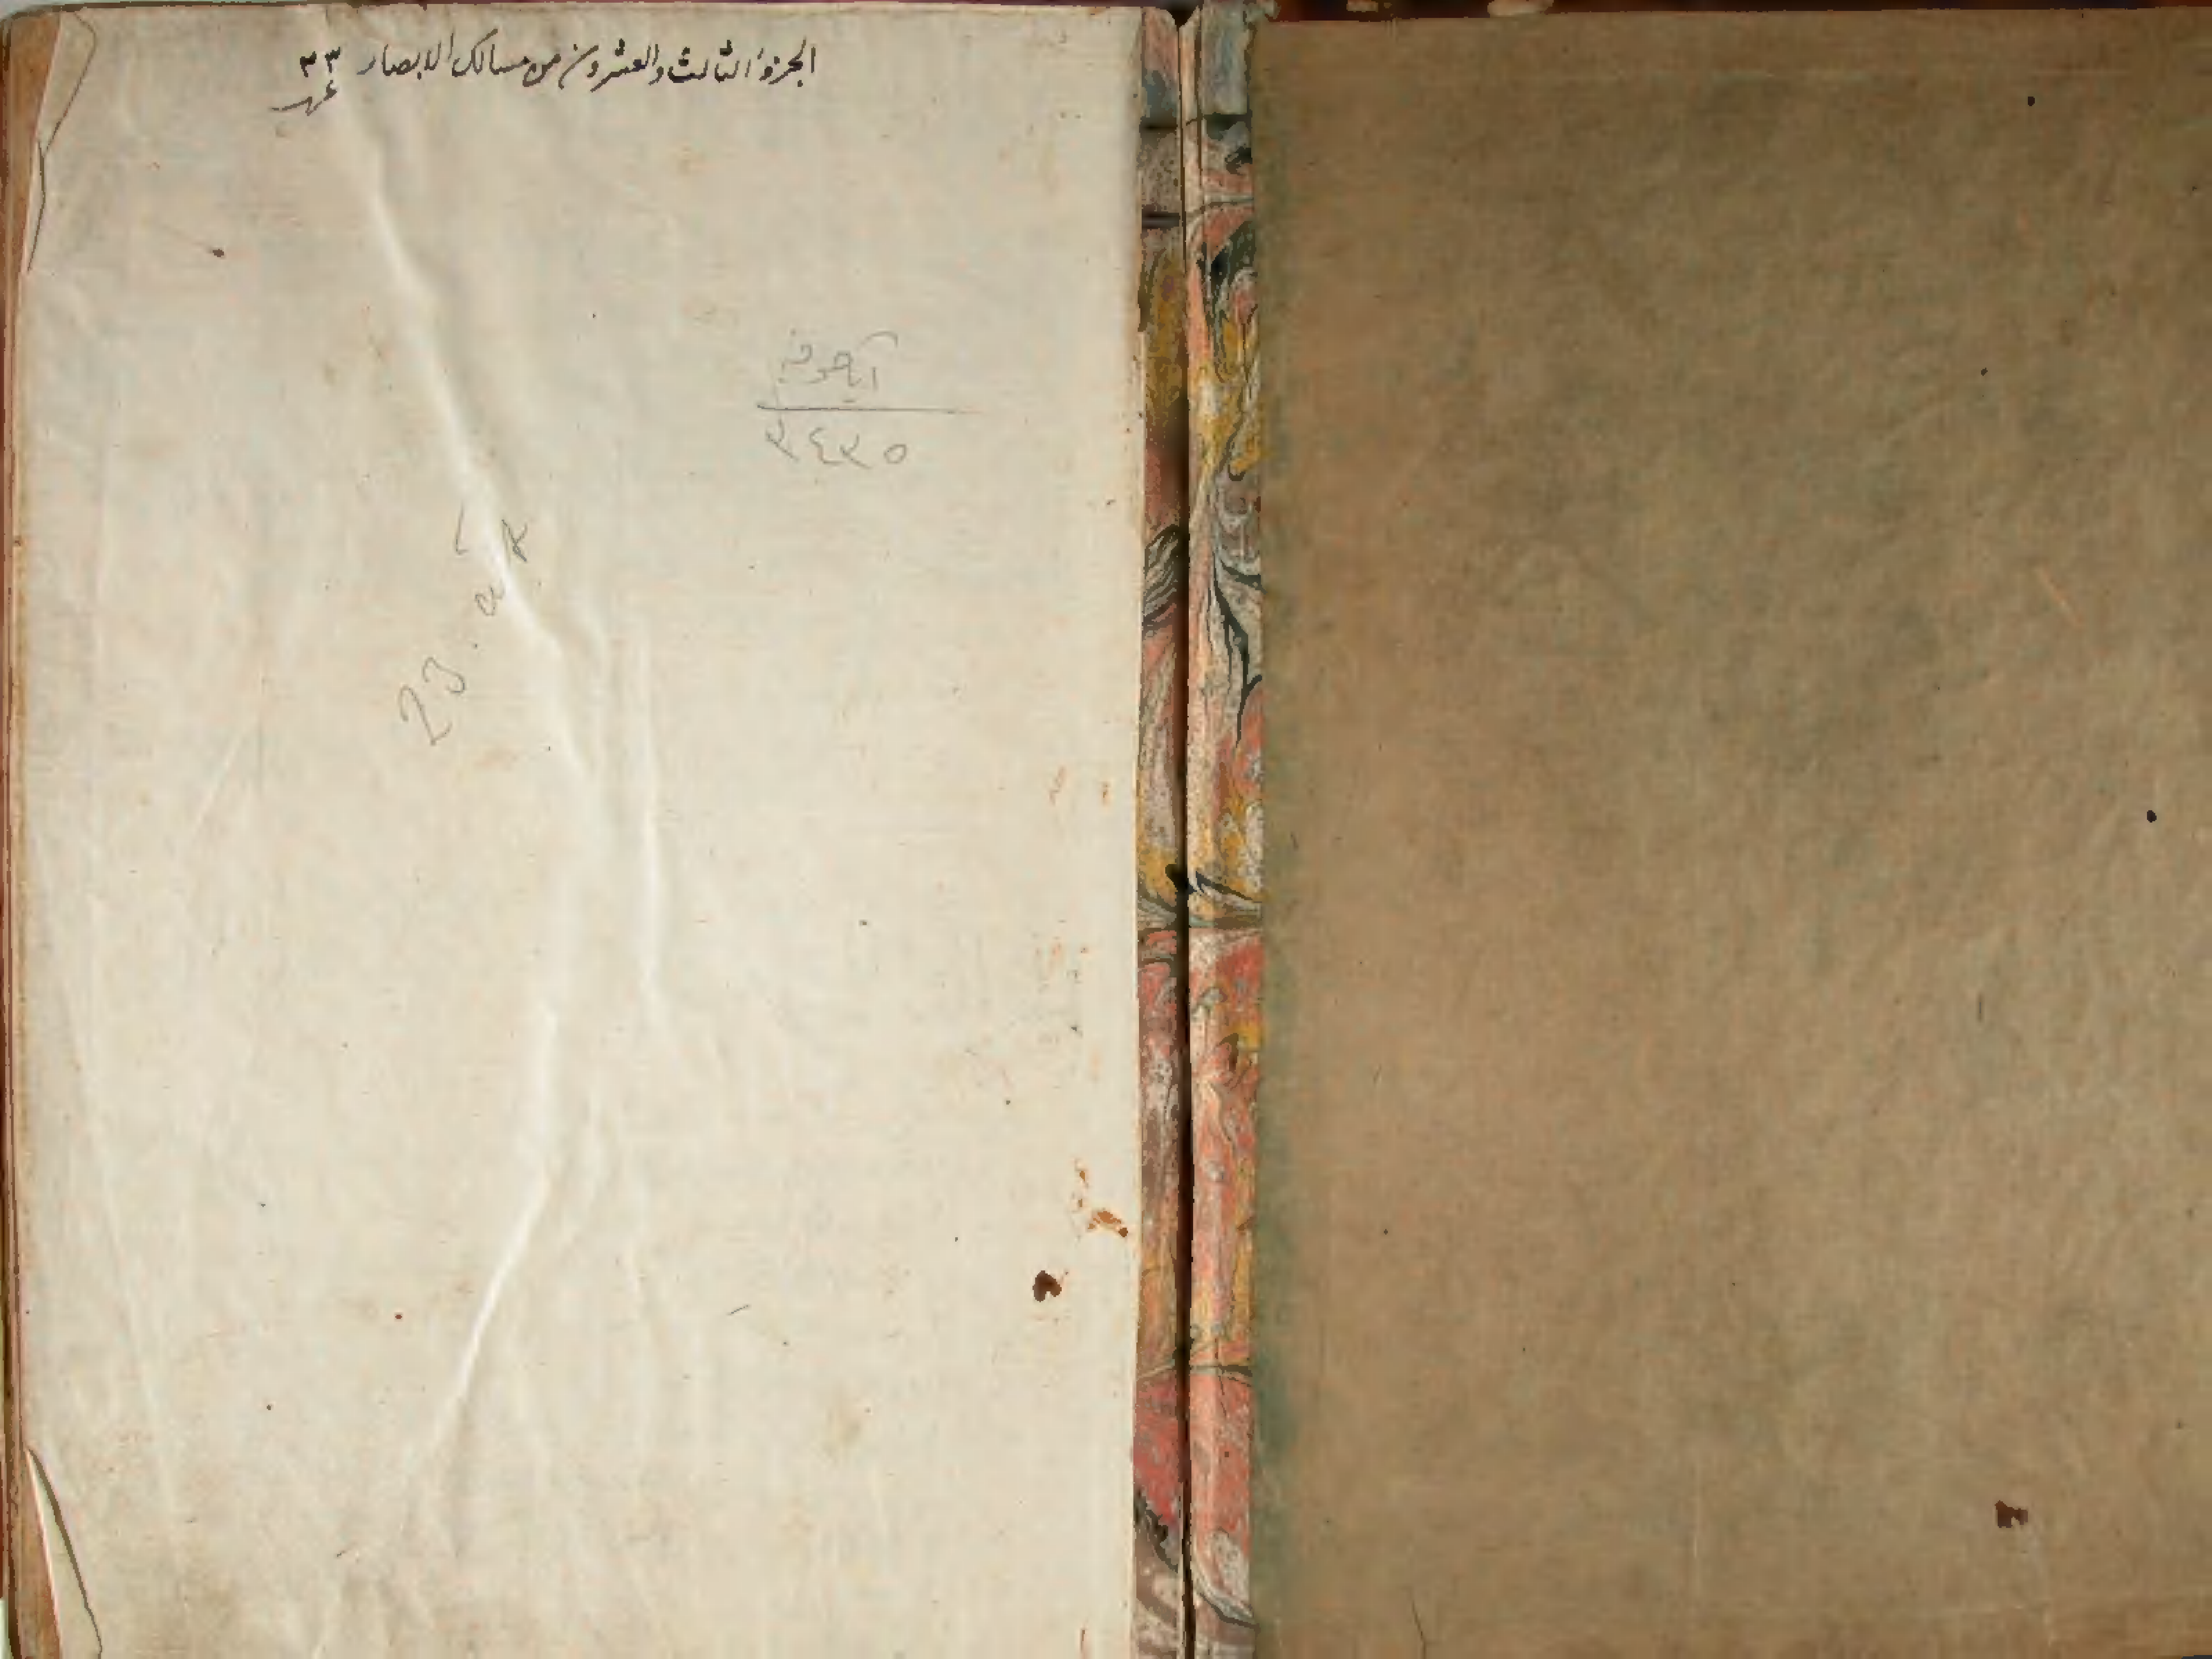 الجزؤ الثالث والعشرون من مسالك الابصار ٣٣
آيا صوفيه
٣٤٣٥
23.